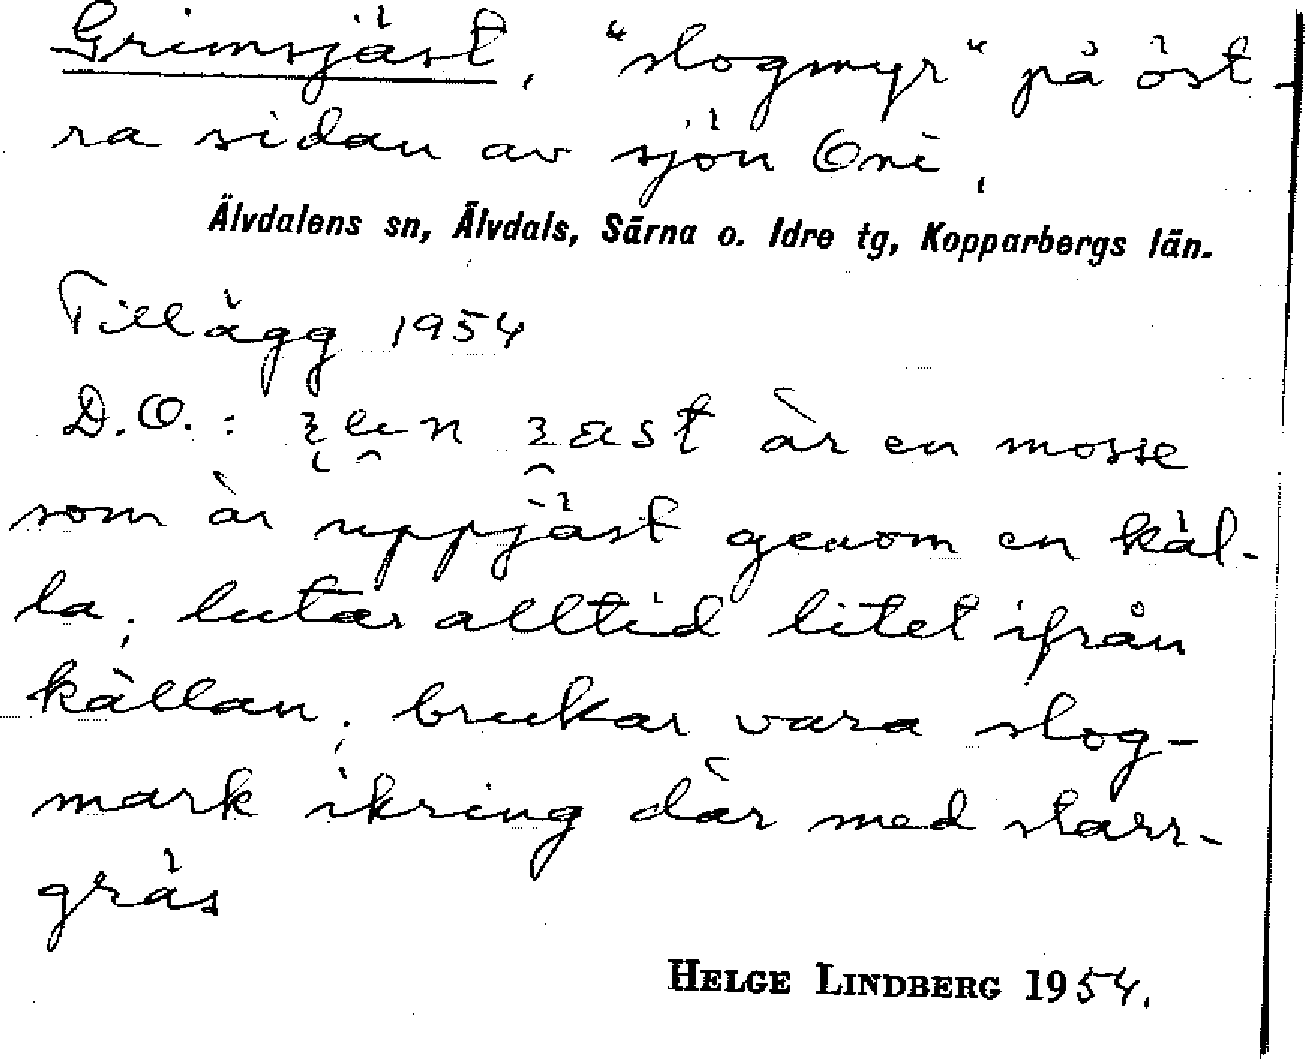 Grimsjäst, "slogmyr" på öst-
ra sidan av sjön Ori,
Älvdalens sn, Älvdals, Särna o. Idre tg, Kopparbergs län.
Tillägg 1954
D.O.: är en mosse
som är uppjäst genom en käl-
la; lutar alltid litet ifrån
källan; brukar vara slog-
mark ikring där med starr-
gräs
HELGE LINDBERG 1954.